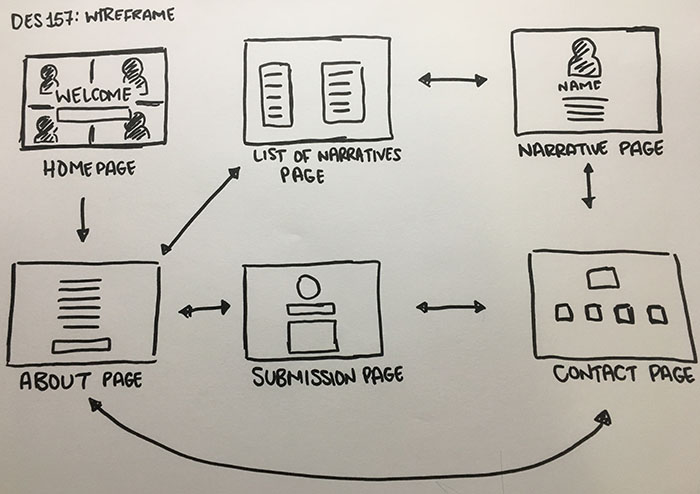 DES 157: WIREFRAME
WELCOME
HOMEPAGE
LIST OF NARRATIVES
PAGE
NAME
NARRATIVE PAGE
ABOUT PAGE
SUBMISSION PAGE
CONTACT PAGE